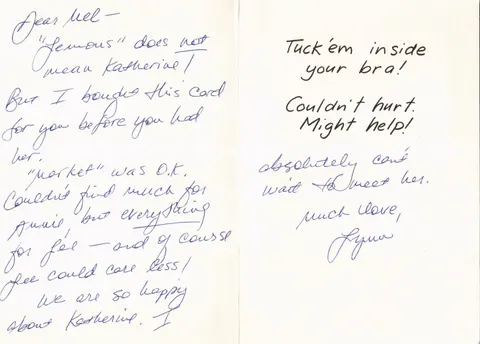 Dear Mel —
"Lemons" does not
mean Katherine!
But I bought this card
for you before you had
her.
"Market" was O.K.
Couldn't find much for
Annie, but everything
for Joe — and of course
Joe could care less!
We are so happy
about Katherine. I
Tuck 'em inside
your bra!
Couldn't hurt.
Might help!
absolutely can't
wait to meet her.
Much Love,
Lynn